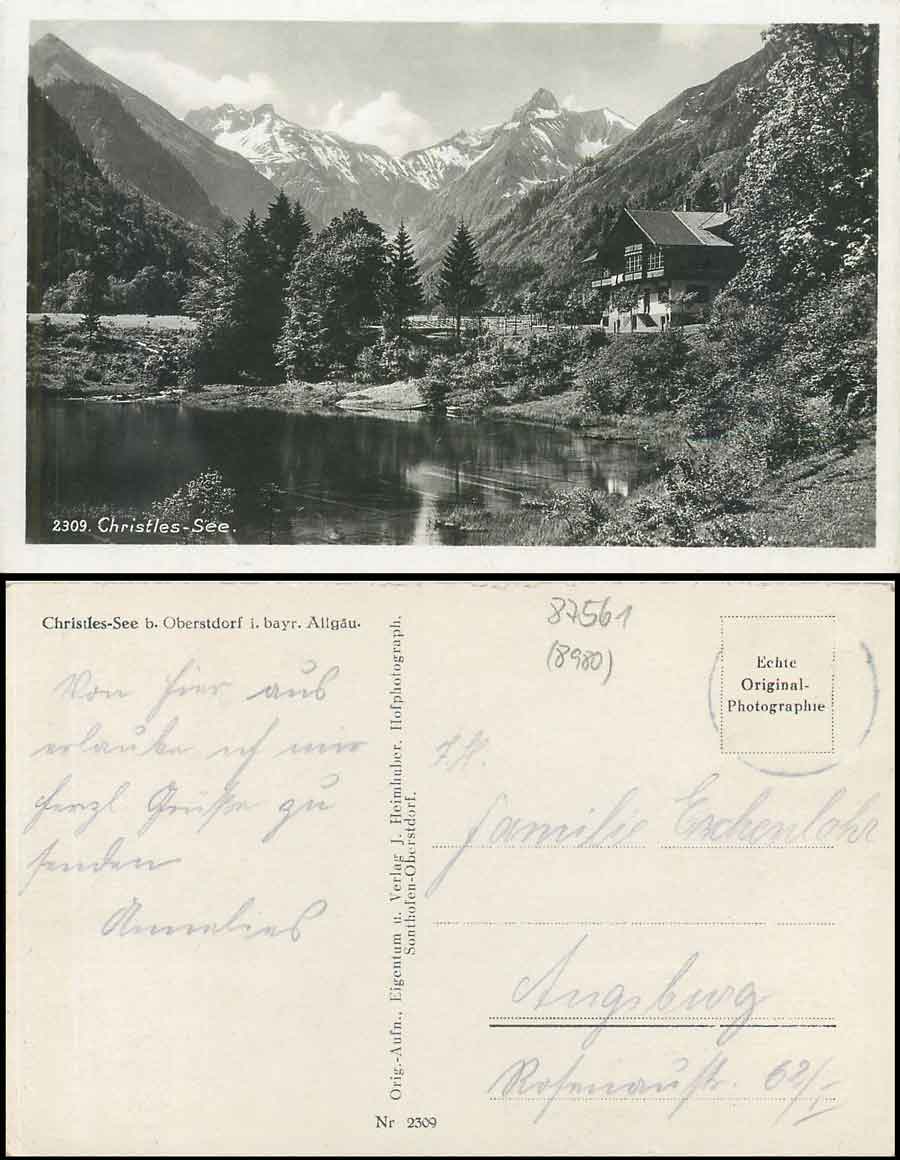 2309. Christles-See.
Christles-See b. Oberstdorf i. bayr. Allgäu.
87561
(8980)
Echte
Original-
Photographie
Von hier aus
erlaube ich mir
herzl Grüße zu
senden
Annelies
Orig.-Aufn., Eigentum u. Verlag J. Heimhuber, Hofphotograph.
Sonthofen-Oberstdorf.
Nr 2309
Familie Eschenlohr
Augsburg
Rosenaustr. 62/I